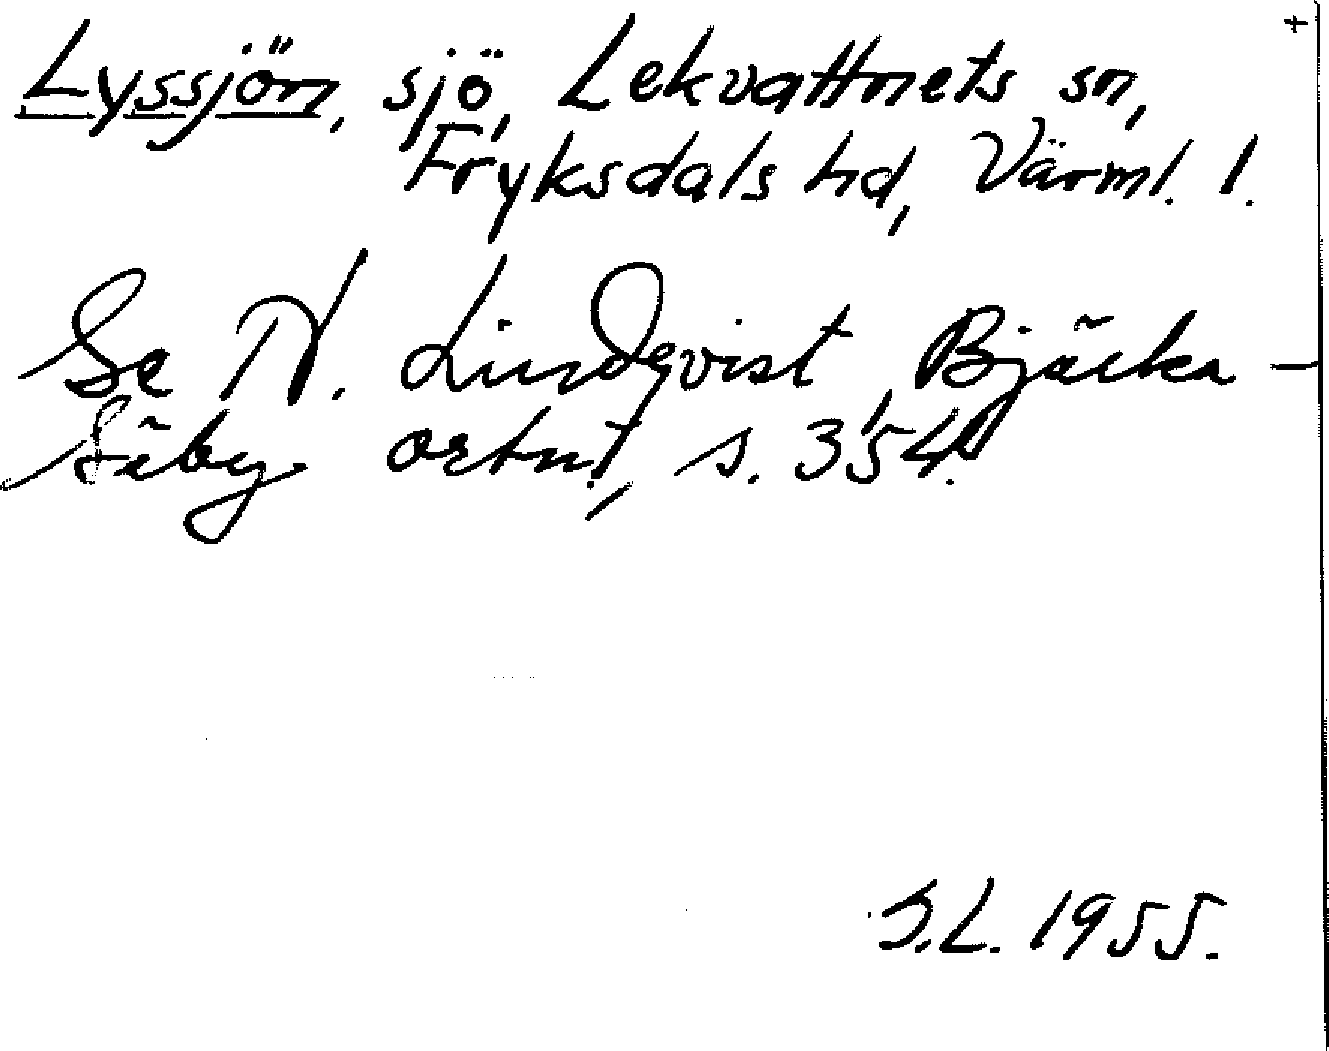 +
Lyssjön, sjö, Lekvattnets sn,
Fryksdals hd, Värml. l.
Se N. Lindqvist, Bjärka-
Säby ortn., s. 354.
S.L. 1955.